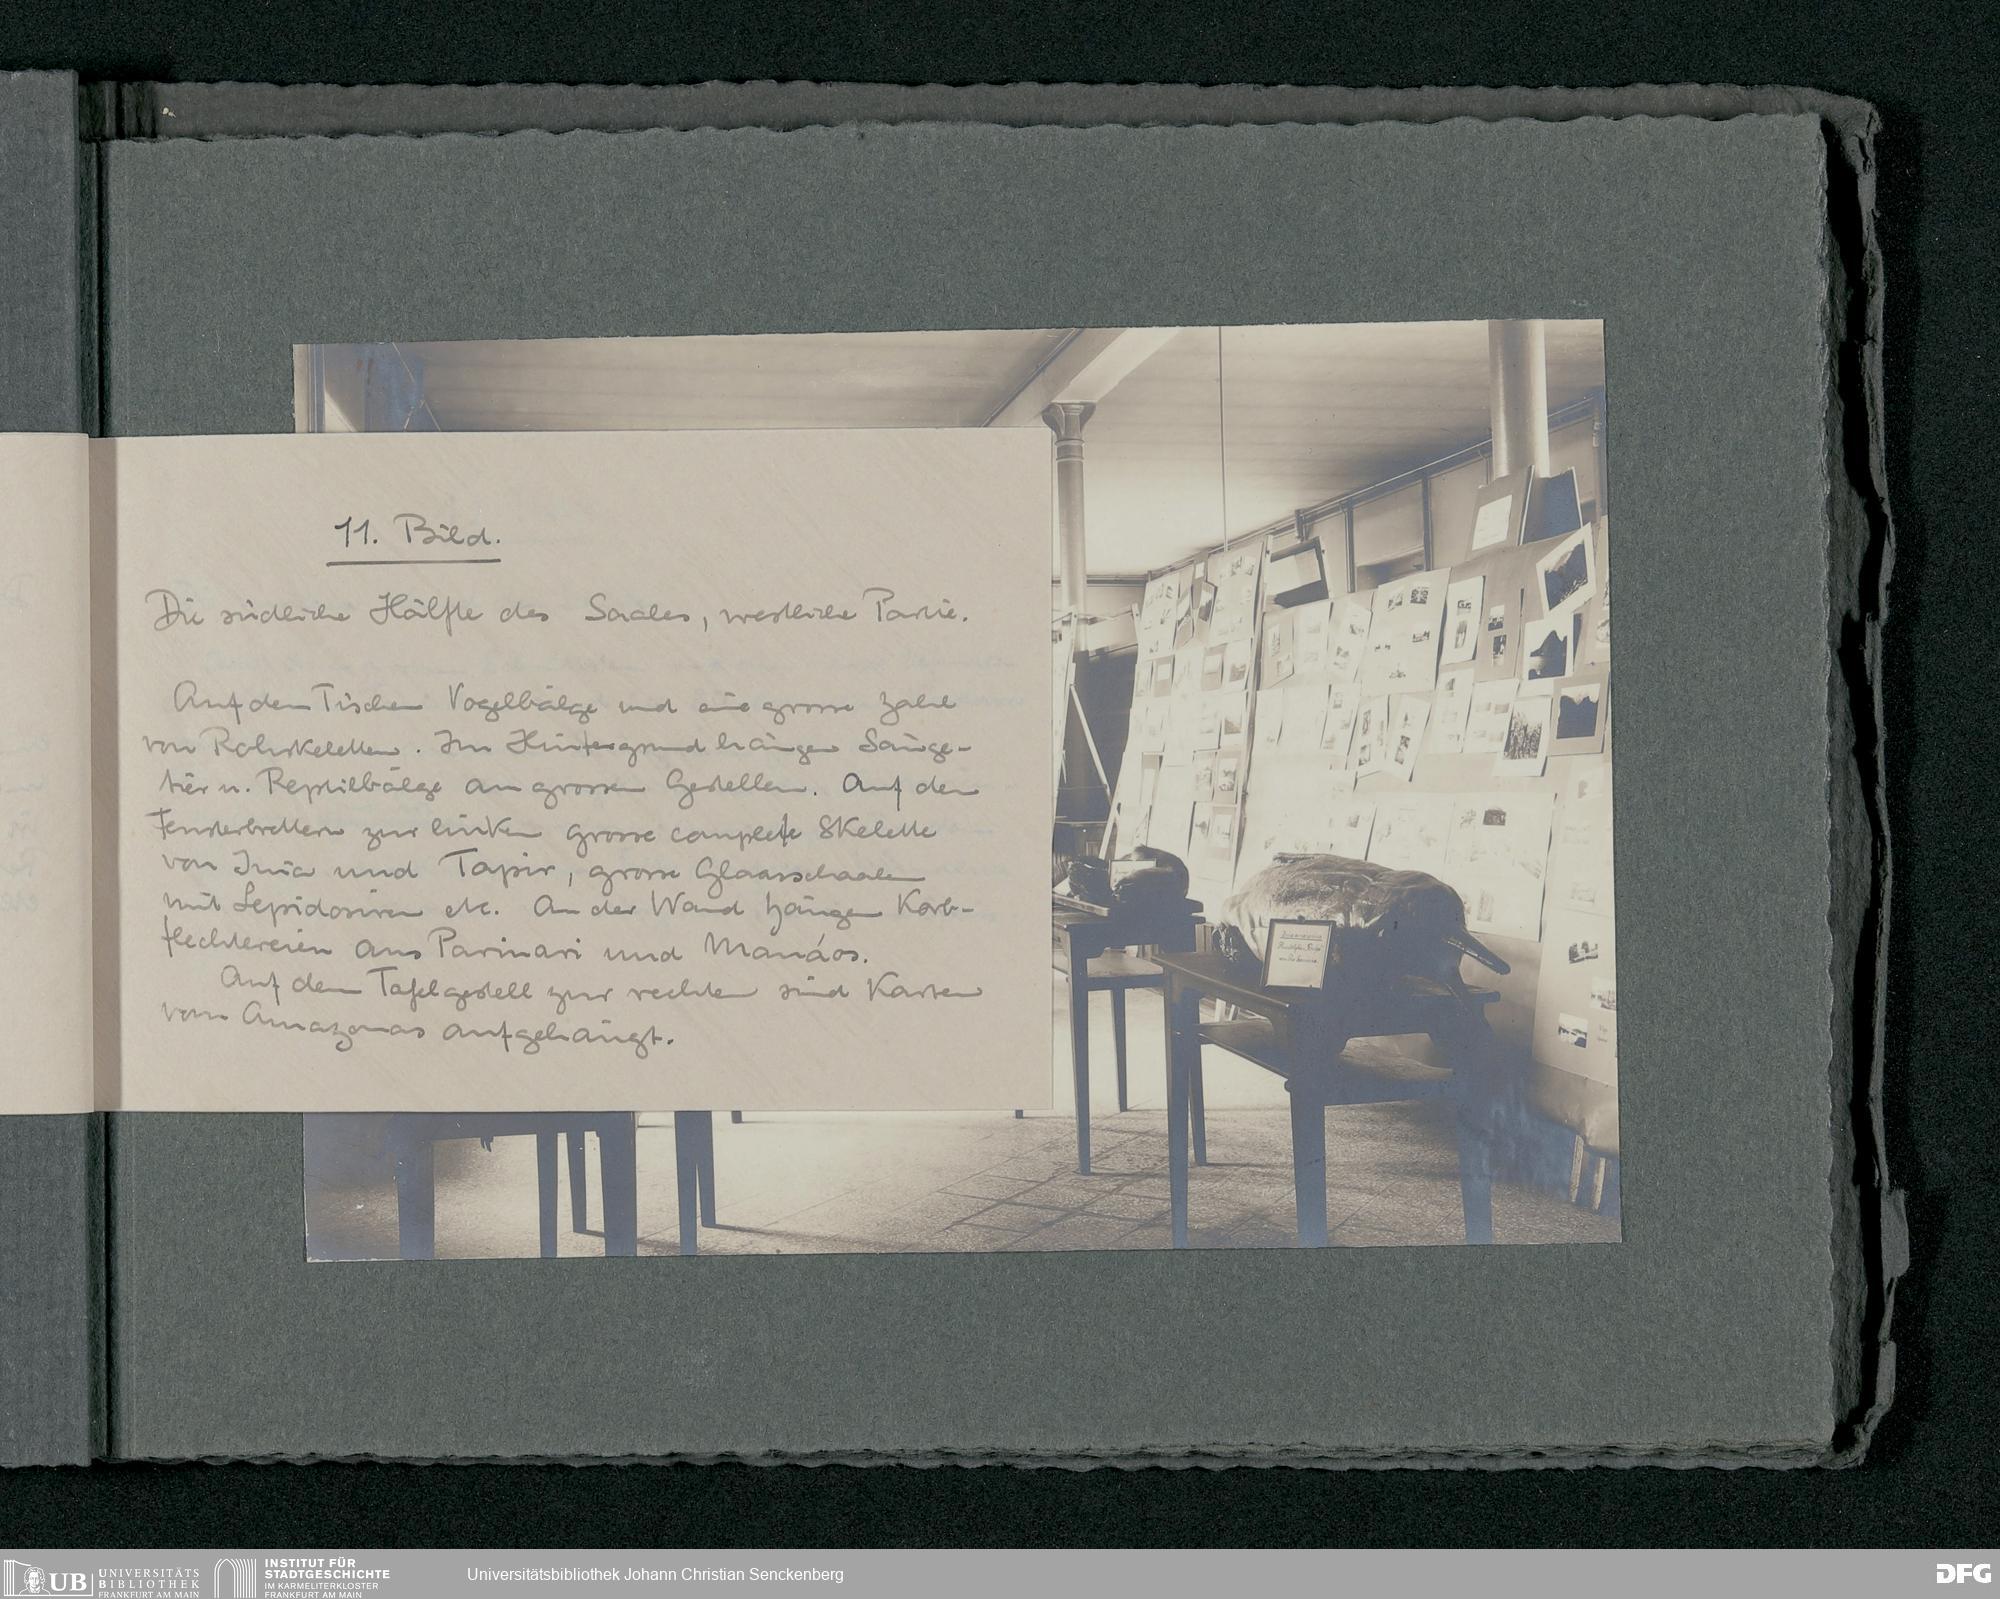 11. Bild.
Die südliche Hälfte des Saales, westliche Partie.
Auf den Tischen Vogelbälge und eine grosse Zahl
von Rohskeletten. Im Hintergrund hängen Säuge-
tier u. Reptilbälge an grossen Gestellen. Auf den
Fensterbrettern zur linken grosse complete Skelette
von Inia und Tapir, grosse Glasschaalen
mit Lepidosiren etc. An der Wand hängen Korb-
flechtereien aus Parinari und Manáos.
Auf dem Tafelgestell zur rechten sind Karten
vom Amazonas aufgehängt.
UB
UNIVERSITÄTS
BIBLIOTHEK
FRANKFURT AM MAIN
INSTITUT FÜR
STADTGESCHICHTE
IM KARMELITERKLOSTER
FRANKFURT AM MAIN
Universitätsbibliothek Johann Christian Senckenberg
DFG